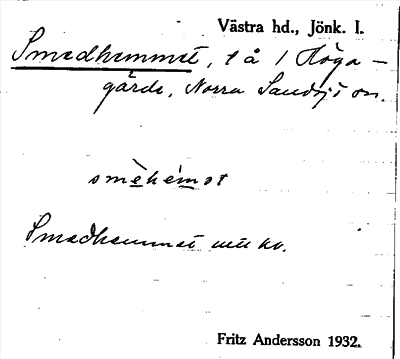 Västra hd., Jönk. l.
Smedhemmet, t å i Höga-
gärde, Norra Sandsjö sn.
smèhemət
Smedhemmet
Fritz Andersson 1932.